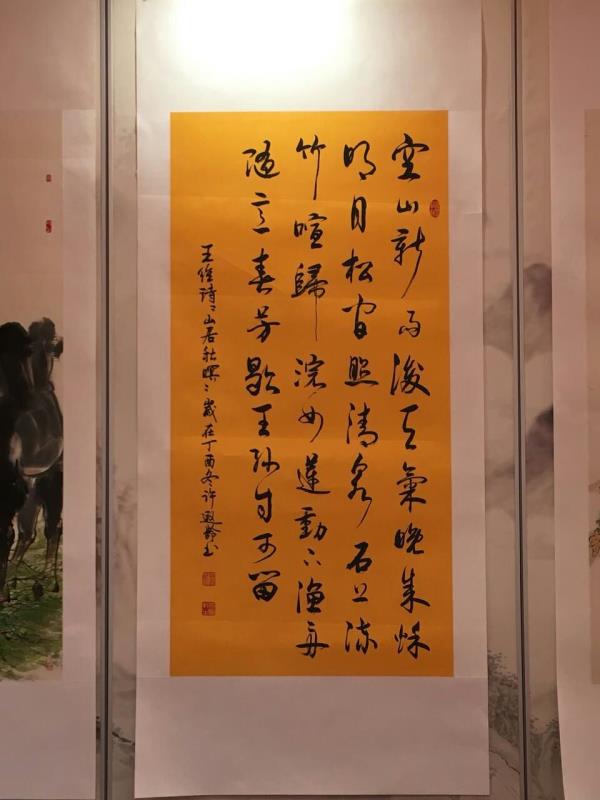 空山新雨後天氣晚來秋
明月松間照清泉石上流
竹喧歸浣女蓮動下漁舟
隨意春芳歇王孫自可留
王維詩:山居秋暝:歲在丁酉冬許遐齡書